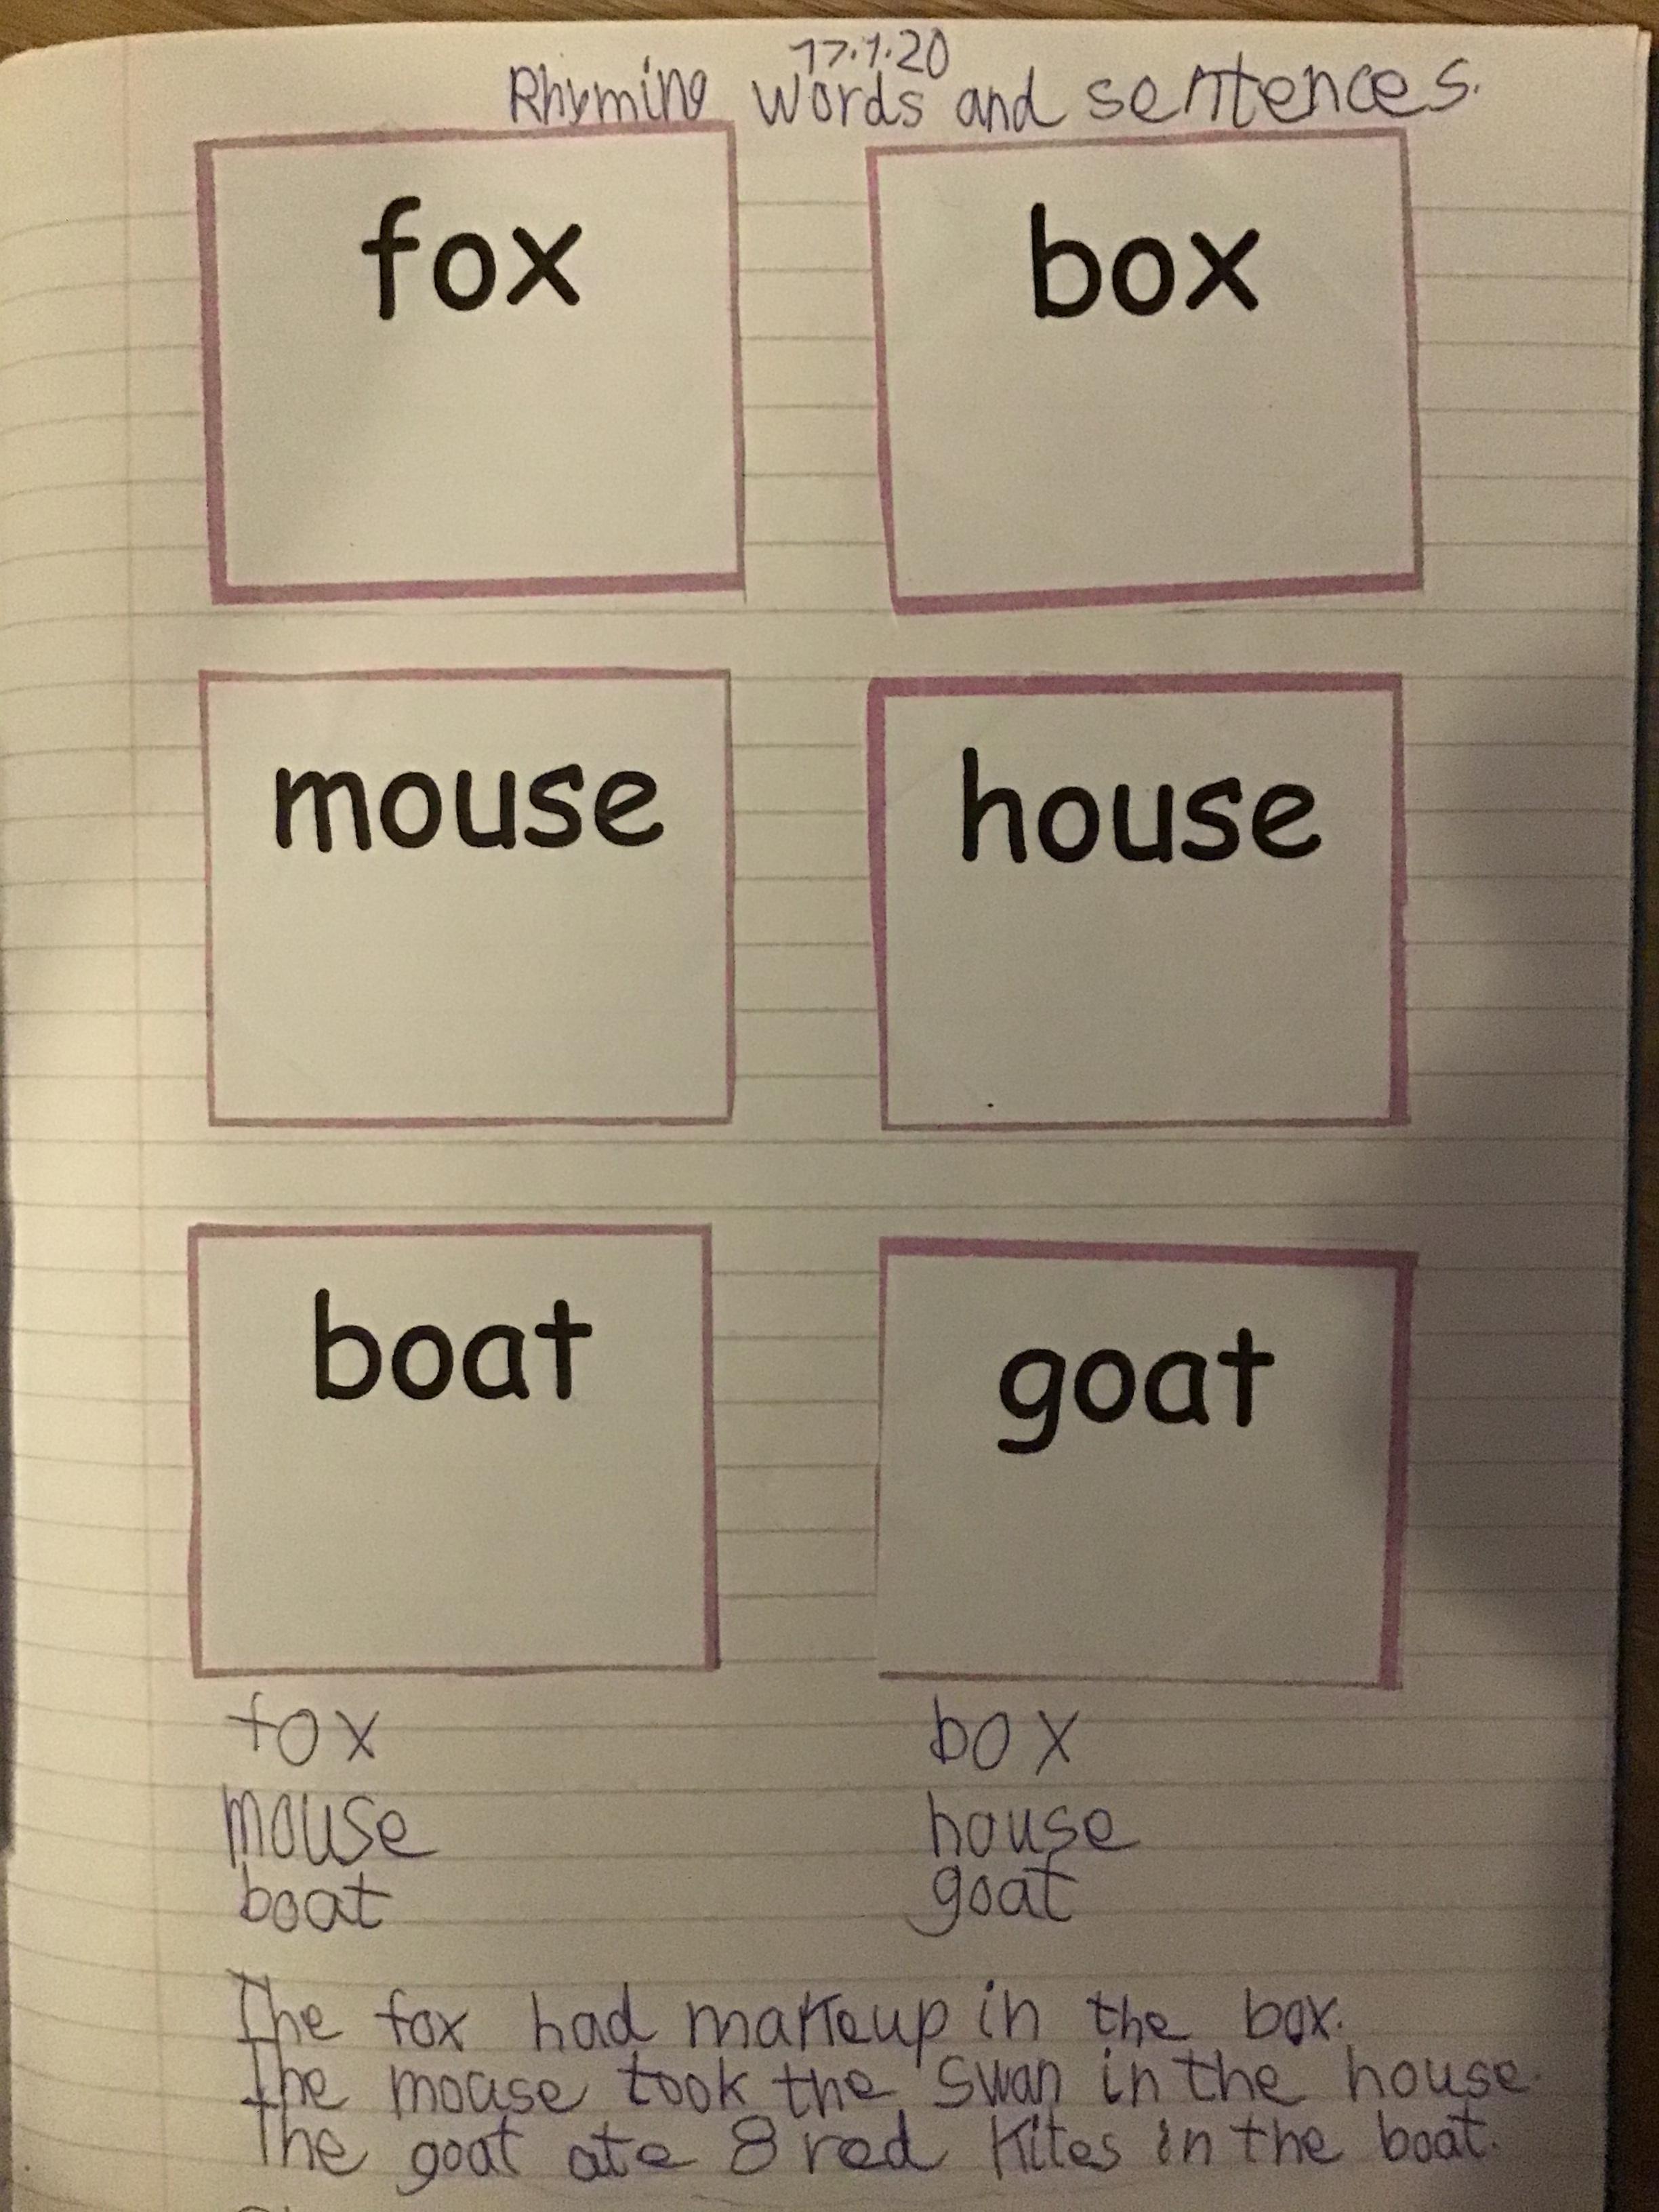 17.1.20
Rhyming words and sentences.
fox box
mouse house
boat goat
fox box
mouse house
boat goat
The fox had makeup in the box.
The mouse took the swan in the house.
The goat ate 8 red kites in the boat.